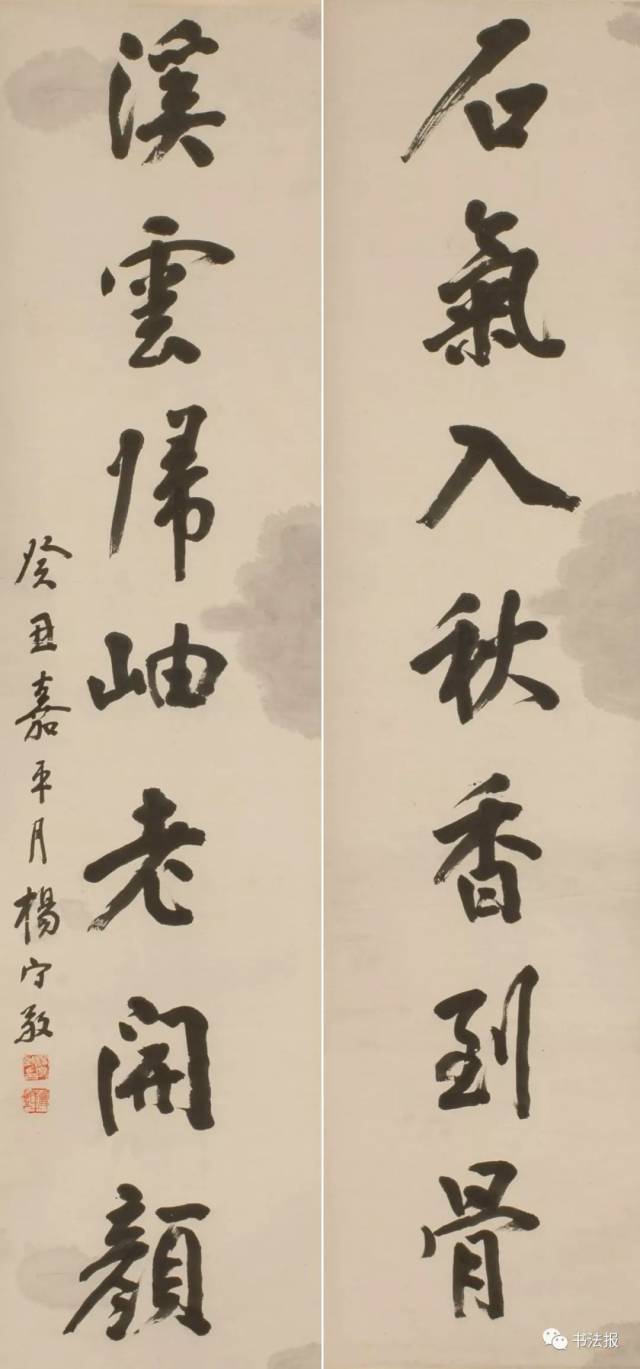 石氣入秋香到骨
溪雲歸岫老開顔
癸丑嘉平月楊守敬
书法报